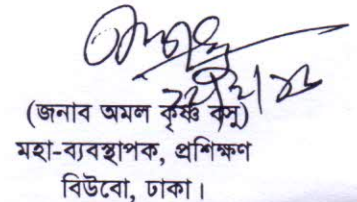 (জনাব অমল কৃষ্ণ বসু)
মহা-ব্যবস্থাপক, প্রশিক্ষণ
বিউবো, ঢাকা।